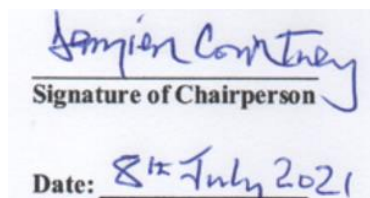 Damien Courtney
Signature of Chairperson
Date: 8th July 2021